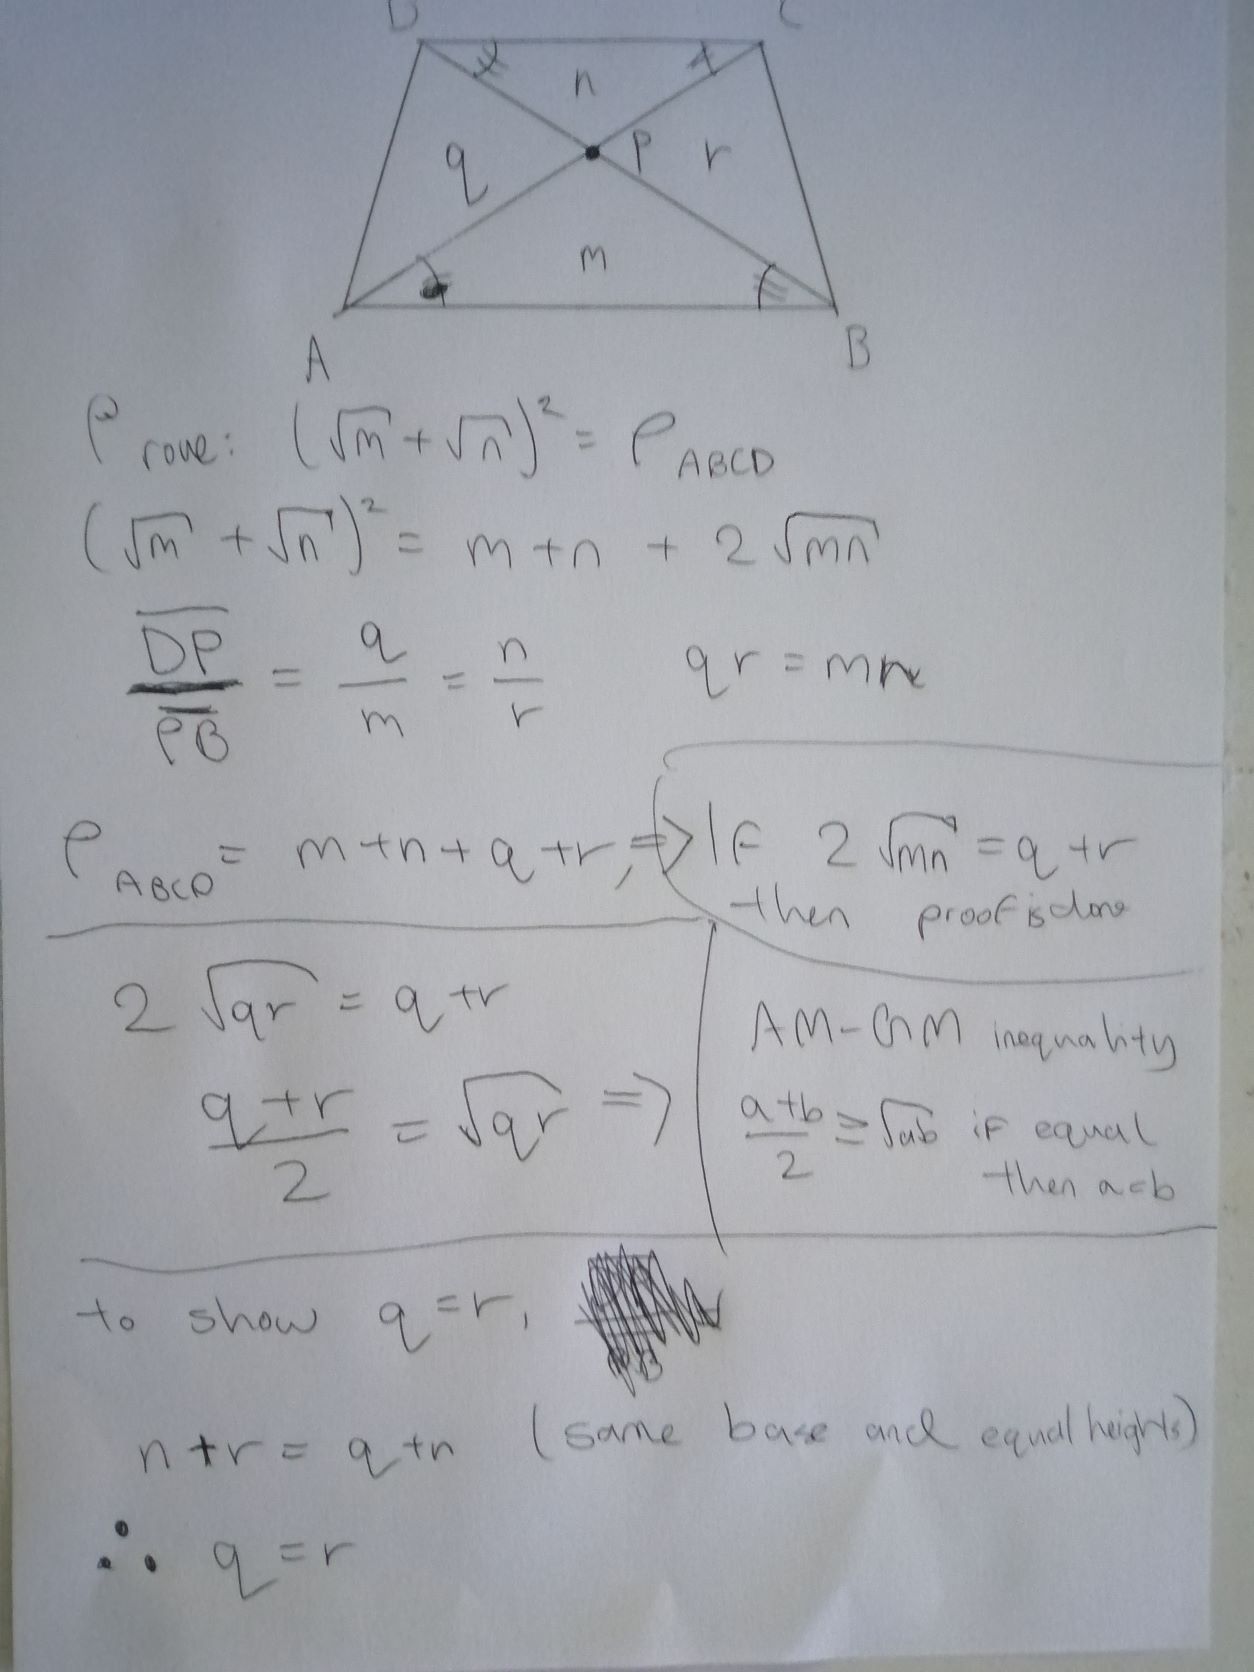 D C
n
q P r
m
A B
Prove: (√m + √n)² = P_ABCD
(√m + √n)² = m + n + 2√mn
DP/PB = q/m = n/r qr = mn
P_ABCD = m + n + q + r, => IF 2√mn = q + r
then proof is done
2√qr = q + r
AM-GM inequality
(q + r)/2 = √qr =>
(a + b)/2 ≥ √ab if equal
then a = b
to show q = r,
n + r = q + n (same base and equal heights)
∴ q = r